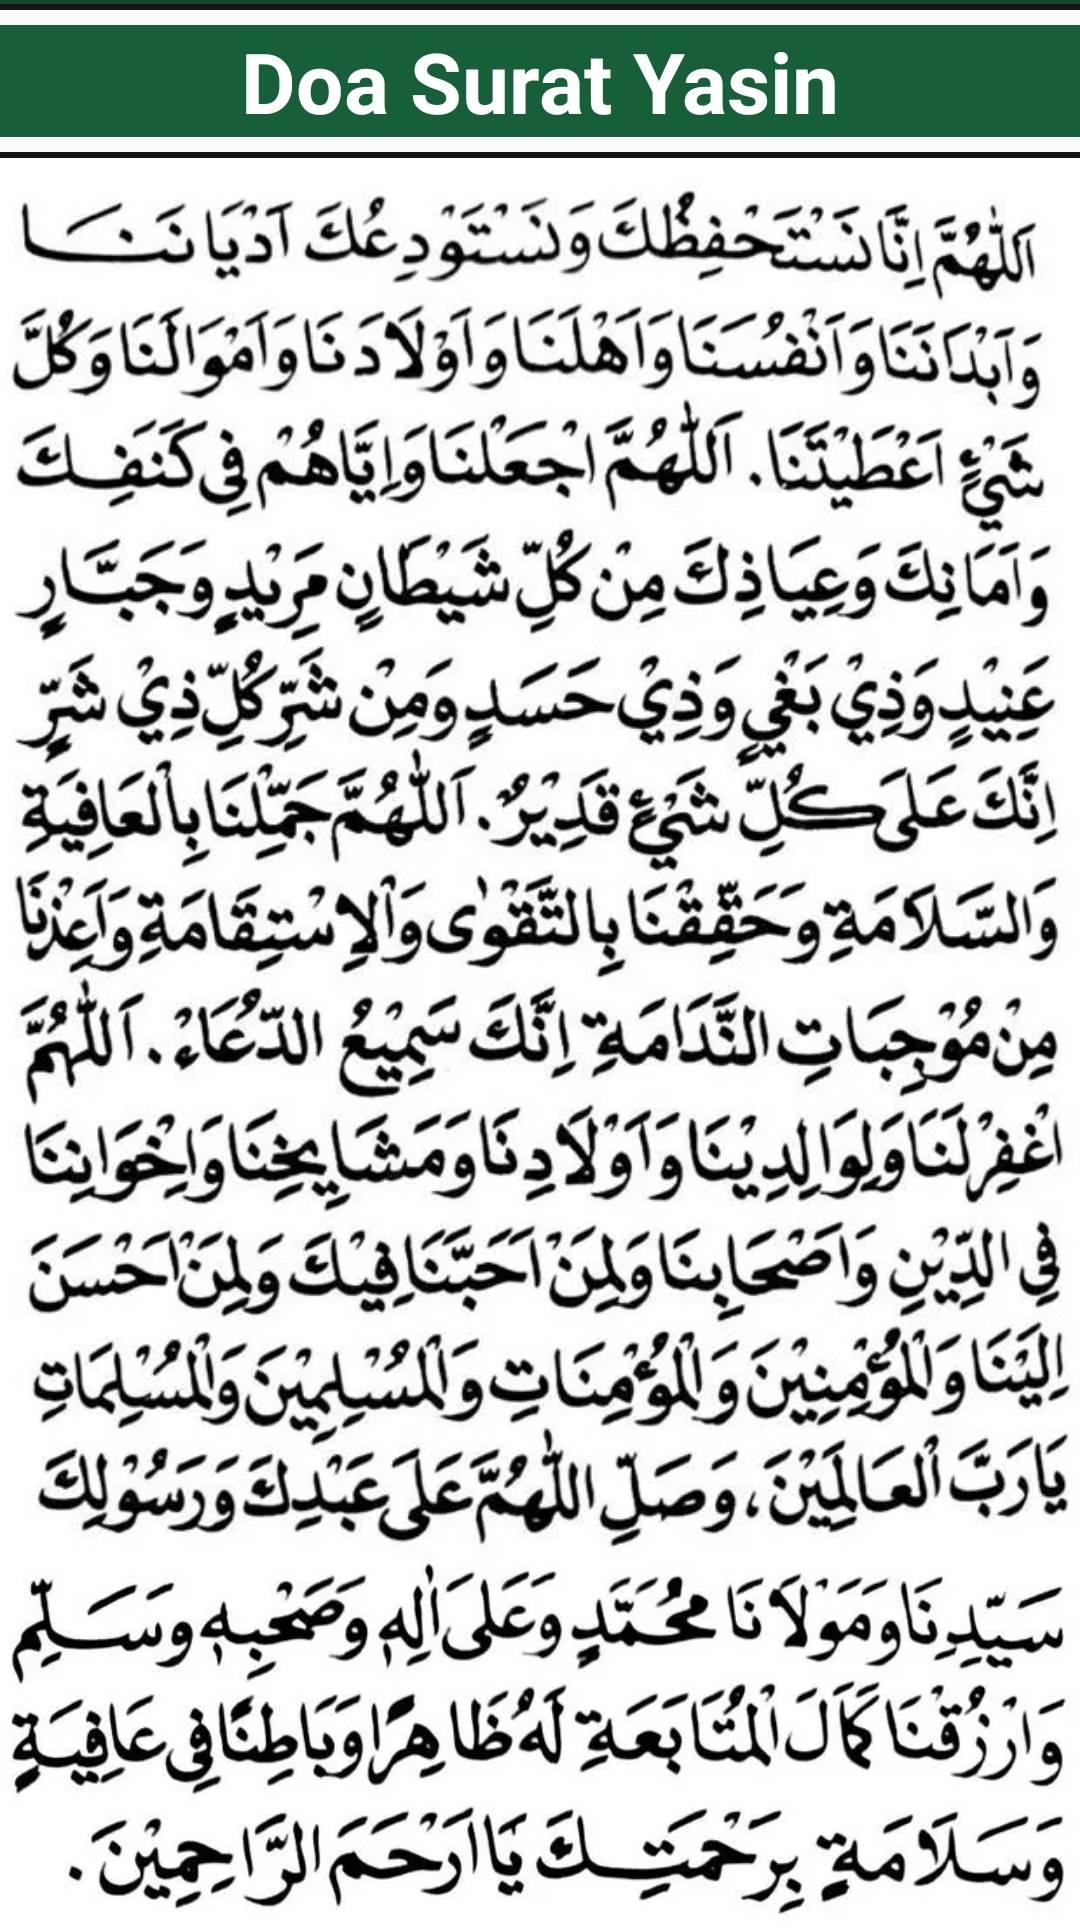 Doa Surat Yasin
اَللّٰهُمَّ اِنَّا نَسْتَحْفِظُكَ وَنَسْتَوْدِعُكَ اَدْيَانَنَا
وَاَبْدَانَنَا وَاَنْفُسَنَا وَاَهْلَنَا وَاَوْلَادَنَا وَاَمْوَالَنَا وَكُلَّ
شَيْءٍ اَعْطَيْتَنَا. اَللّٰهُمَّ اجْعَلْنَا وَاِيَّاهُمْ فِي كَنَفِكَ
وَاَمَانِكَ وَعِيَاذِكَ مِنْ كُلِّ شَيْطَانٍ مَرِيْدٍ وَجَبَّارٍ
عَنِيْدٍ وَذِيْ بَغْيٍ وَذِيْ حَسَدٍ وَمِنْ شَرِّ كُلِّ ذِيْ شَرٍّ
اِنَّكَ عَلَى كُلِّ شَيْءٍ قَدِيْرٌ. اَللّٰهُمَّ جَمِّلْنَا بِالْعَافِيَةِ
وَالسَّلَامَةِ وَحَقِّقْنَا بِالتَّقْوٰى وَاْلاِسْتِقَامَةِ وَاَعِذْنَا
مِنْ مُوْجِبَاتِ النَّدَامَةِ اِنَّكَ سَمِيْعُ الدُّعَاءِ. اَللّٰهُمَّ
اغْفِرْ لَنَا وَلِوَالِدِيْنَا وَاَوْلَادِنَا وَمَشَايِخِنَا وَاِخْوَانِنَا
فِي الدِّيْنِ وَاَصْحَابِنَا وَلِمَنْ اَحَبَّنَا فِيْكَ وَلِمَنْ اَحْسَنَ
اِلَيْنَا وَالْمُؤْمِنِيْنَ وَالْمُؤْمِنَاتِ وَالْمُسْلِمِيْنَ وَالْمُسْلِمَاتِ
يَا رَبَّ الْعَالَمِيْنَ، وَصَلِّ اللّٰهُمَّ عَلَى عَبْدِكَ وَرَسُوْلِكَ
سَيِّدِنَا وَمَوْلَانَا مُحَمَّدٍ وَعَلَى اٰلِهٖ وَصَحْبِهٖ وَسَلِّمْ
وَارْزُقْنَا كَمَالَ الْمُتَابَعَةِ لَهُ ظَاهِرًا وَبَاطِنًا فِي عَافِيَةٍ
وَسَلَامَةٍ بِرَحْمَتِكَ يَا اَرْحَمَ الرَّاحِمِيْنَ.